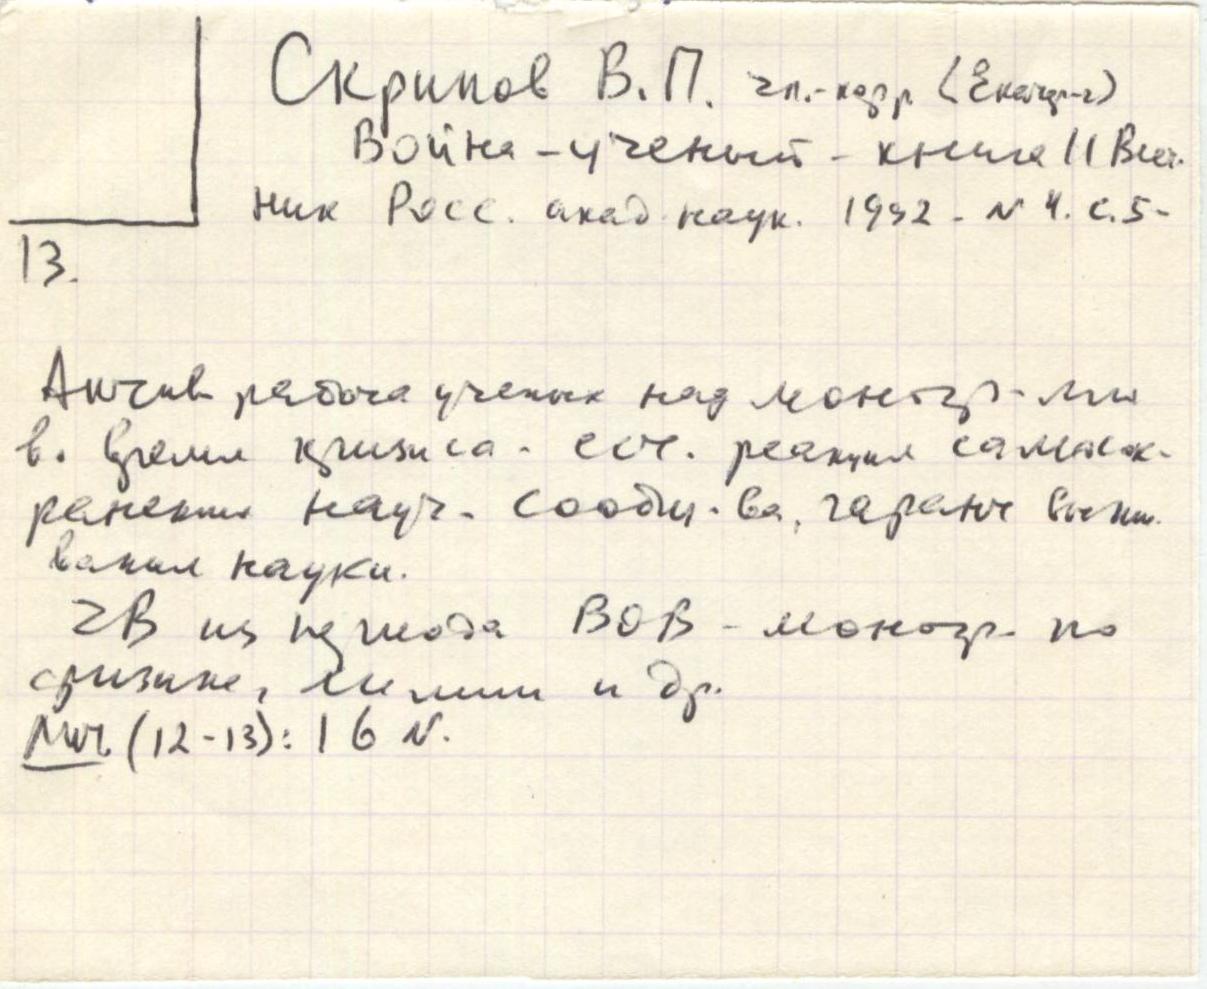 Скрипов В.П. чл.-корр (Екатер-г)
Война - ученый - книга // Вест-
ник Росс. акад наук. 1992 - N 4. С.5-
13.
Актив работа ученых над моногр-ми
в. время кризиса - ест. реакция самосох-
ранения науч. сообщ-ва, гарант выжи-
вания науки.
из периода ВОВ - моногр. по
физике, химии и др.
Лит. (12-13): 16 N.